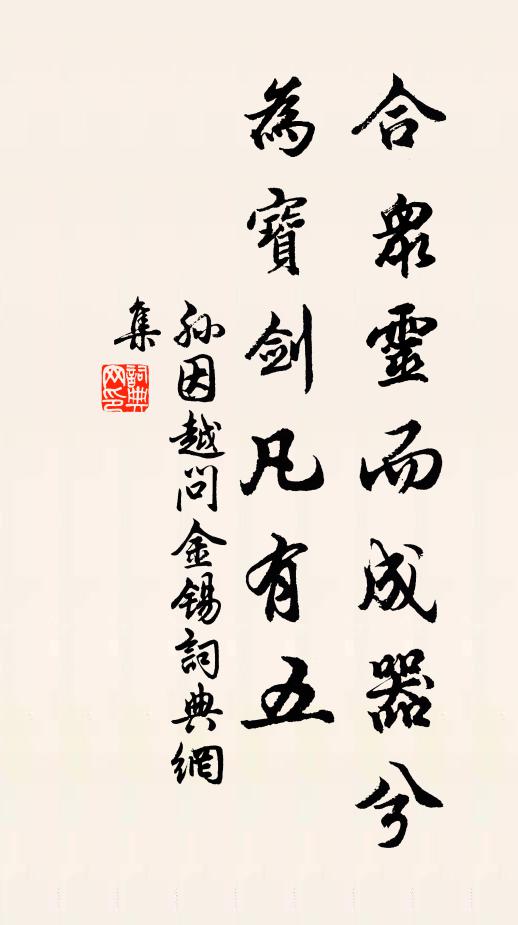 合眾靈而成器兮
為寶劍凡有五
孙因越問金錫詞典網
集
詞典
网印